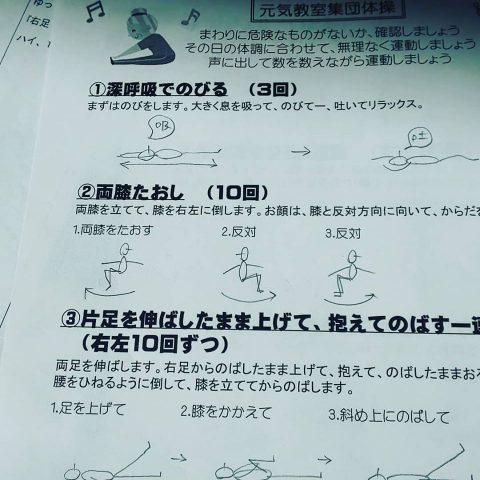 元気教室集団体操
まわりに危険なものがないか、確認しましょう
その日の体調に合わせて、無理なく運動しましょう
声に出して数を数えながら運動しましょう
①深呼吸でのびる （3回）
まずはのびをします。大きく息を吸って、のびてー、吐いてリラックス。
吸
吐
②両膝たおし （10回）
両膝を立てて、膝を右左に倒します。お顔は、膝と反対方向に向いて、からだを
1.両膝をたおす 2.反対 3.反対
③片足を伸ばしたまま上げて、抱えてのばす一連
（右左10回ずつ）
両足を伸ばします。右足からのばしたまま上げて、抱えて、のばしたままお
腰をひねるように倒して、膝を立ててからのばします。
1.足を上げて 2.膝をかかえて 3.斜め上にのばして
「右足
ハイ、1